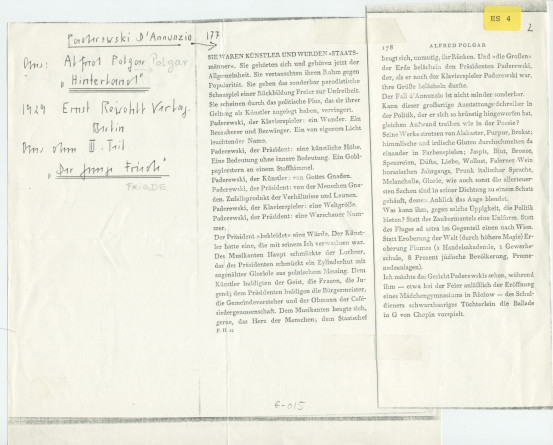 Paderewski D'Annunzio 177
Aus: Alfred Polgar Polgar
„Hinterland"
1929 Ernst Rowohlt Verlag.
Berlin
Aus dem III. Teil
„Der junge Friede"
FRIEDE
SIE WAREN KÜNSTLER UND WURDEN »STAATS-
männer«. Sie gehörten sich und gehören jetzt der
Allgemeinheit. Sie vertauschten ihren Ruhm gegen
Popularität. Sie geben das sonderbar parodistische
Schauspiel einer Rückbildung Freier zur Unfreiheit.
Sie scheinen durch das politische Plus, das sie ihrer
Geltung als Künstler angelegt haben, verringert.
Paderewski, der Klavierspieler: ein Wunder. Ein
Bezauberer und Bezwinger. Ein von eigenem Licht
leuchtender Name.
Paderewski, der Präsident: eine künstliche Höhe.
Eine Bedeutung ohne innere Bedeutung. Ein Gold-
papierstern an einem Stoffhimmel.
Paderewski, der Künstler: von Gottes Gnaden.
Paderewski, der Präsident: von der Menschen Gna-
den. Zufallsprodukt der Verhältnisse und Launen.
Paderewski, der Klavierspieler: eine Weltgröße.
Paderewski, der Präsident: eine Warschauer Num-
mer.
Der Präsident »bekleidet« eine Würde. Der Künst-
ler hatte eine, die mit seinem Ich verwachsen war.
Des Musikanten Haupt schmückte der Lorbeer,
das des Präsidenten schmückt ein Zylinderhut mit
angenähter Gloriole aus polnischem Messing. Dem
Künstler huldigten der Geist, die Frauen, die Ju-
gend; dem Präsidenten huldigen die Bürgermeister,
die Gemeindevorsteher und der Obmann der Café-
siedergenossenschaft. Dem Musikanten beugte sich,
gerne, das Herz der Menschen; dem Staatschef
P. H. 12
6-015
HS 4
2
178 ALFRED POLGAR
beugt sich, unmutig, ihr Rücken. Und »die Großen«
der Erde belächeln den Präsidenten Paderewski,
der, als er noch der Klavierspieler Paderewski war,
ihre Größe belächeln durfte.
Der Fall d'Annunzio ist nicht minder sonderbar.
Kann dieser großartige Ausstattungs-Schreiber in
der Politik, der er sich so brünstig hingeworfen hat,
gleichen Aufwand treiben wie in der Poesie?
Seine Werke strotzen von Alabaster, Purpur, Brokat;
himmlische und irdische Gluten durchschmelzen da
einander in Farbenspielen; Jaspis, Blut, Bronze,
Spezereien, Düfte, Liebe, Wollust, Falerner Wein
horazischen Jahrgangs, Prunk italischer Sprache,
Melancholie, Glorie, wie auch sonst die allerteuer-
sten Sachen sind in seiner Dichtung zu einem Schatz
gehäuft, dessen Anblick das Auge blendet.
Was kann ihm, gegen solche Üppigkeit, die Politik
bieten? Statt des Zaubermantels eine Uniform. Statt
des Fluges ad astra im Gegenteil einen nach Wien.
Statt Eroberung der Welt (durch höhere Magie) Er-
oberung Fiumes (1 Handelsakademie, 1 Gewerbe-
schule, 8 Prozent jüdische Bevölkerung, Prome-
nadeanlagen).
Ich möchte das Gesicht Paderewskis sehen, während
ihm — etwa bei der Feier anläßlich der Eröffnung
eines Mädchengymnasiums in Rzeszow — des Schul-
dieners schwarzhaariges Töchterlein die Ballade
in G von Chopin vorspielt.